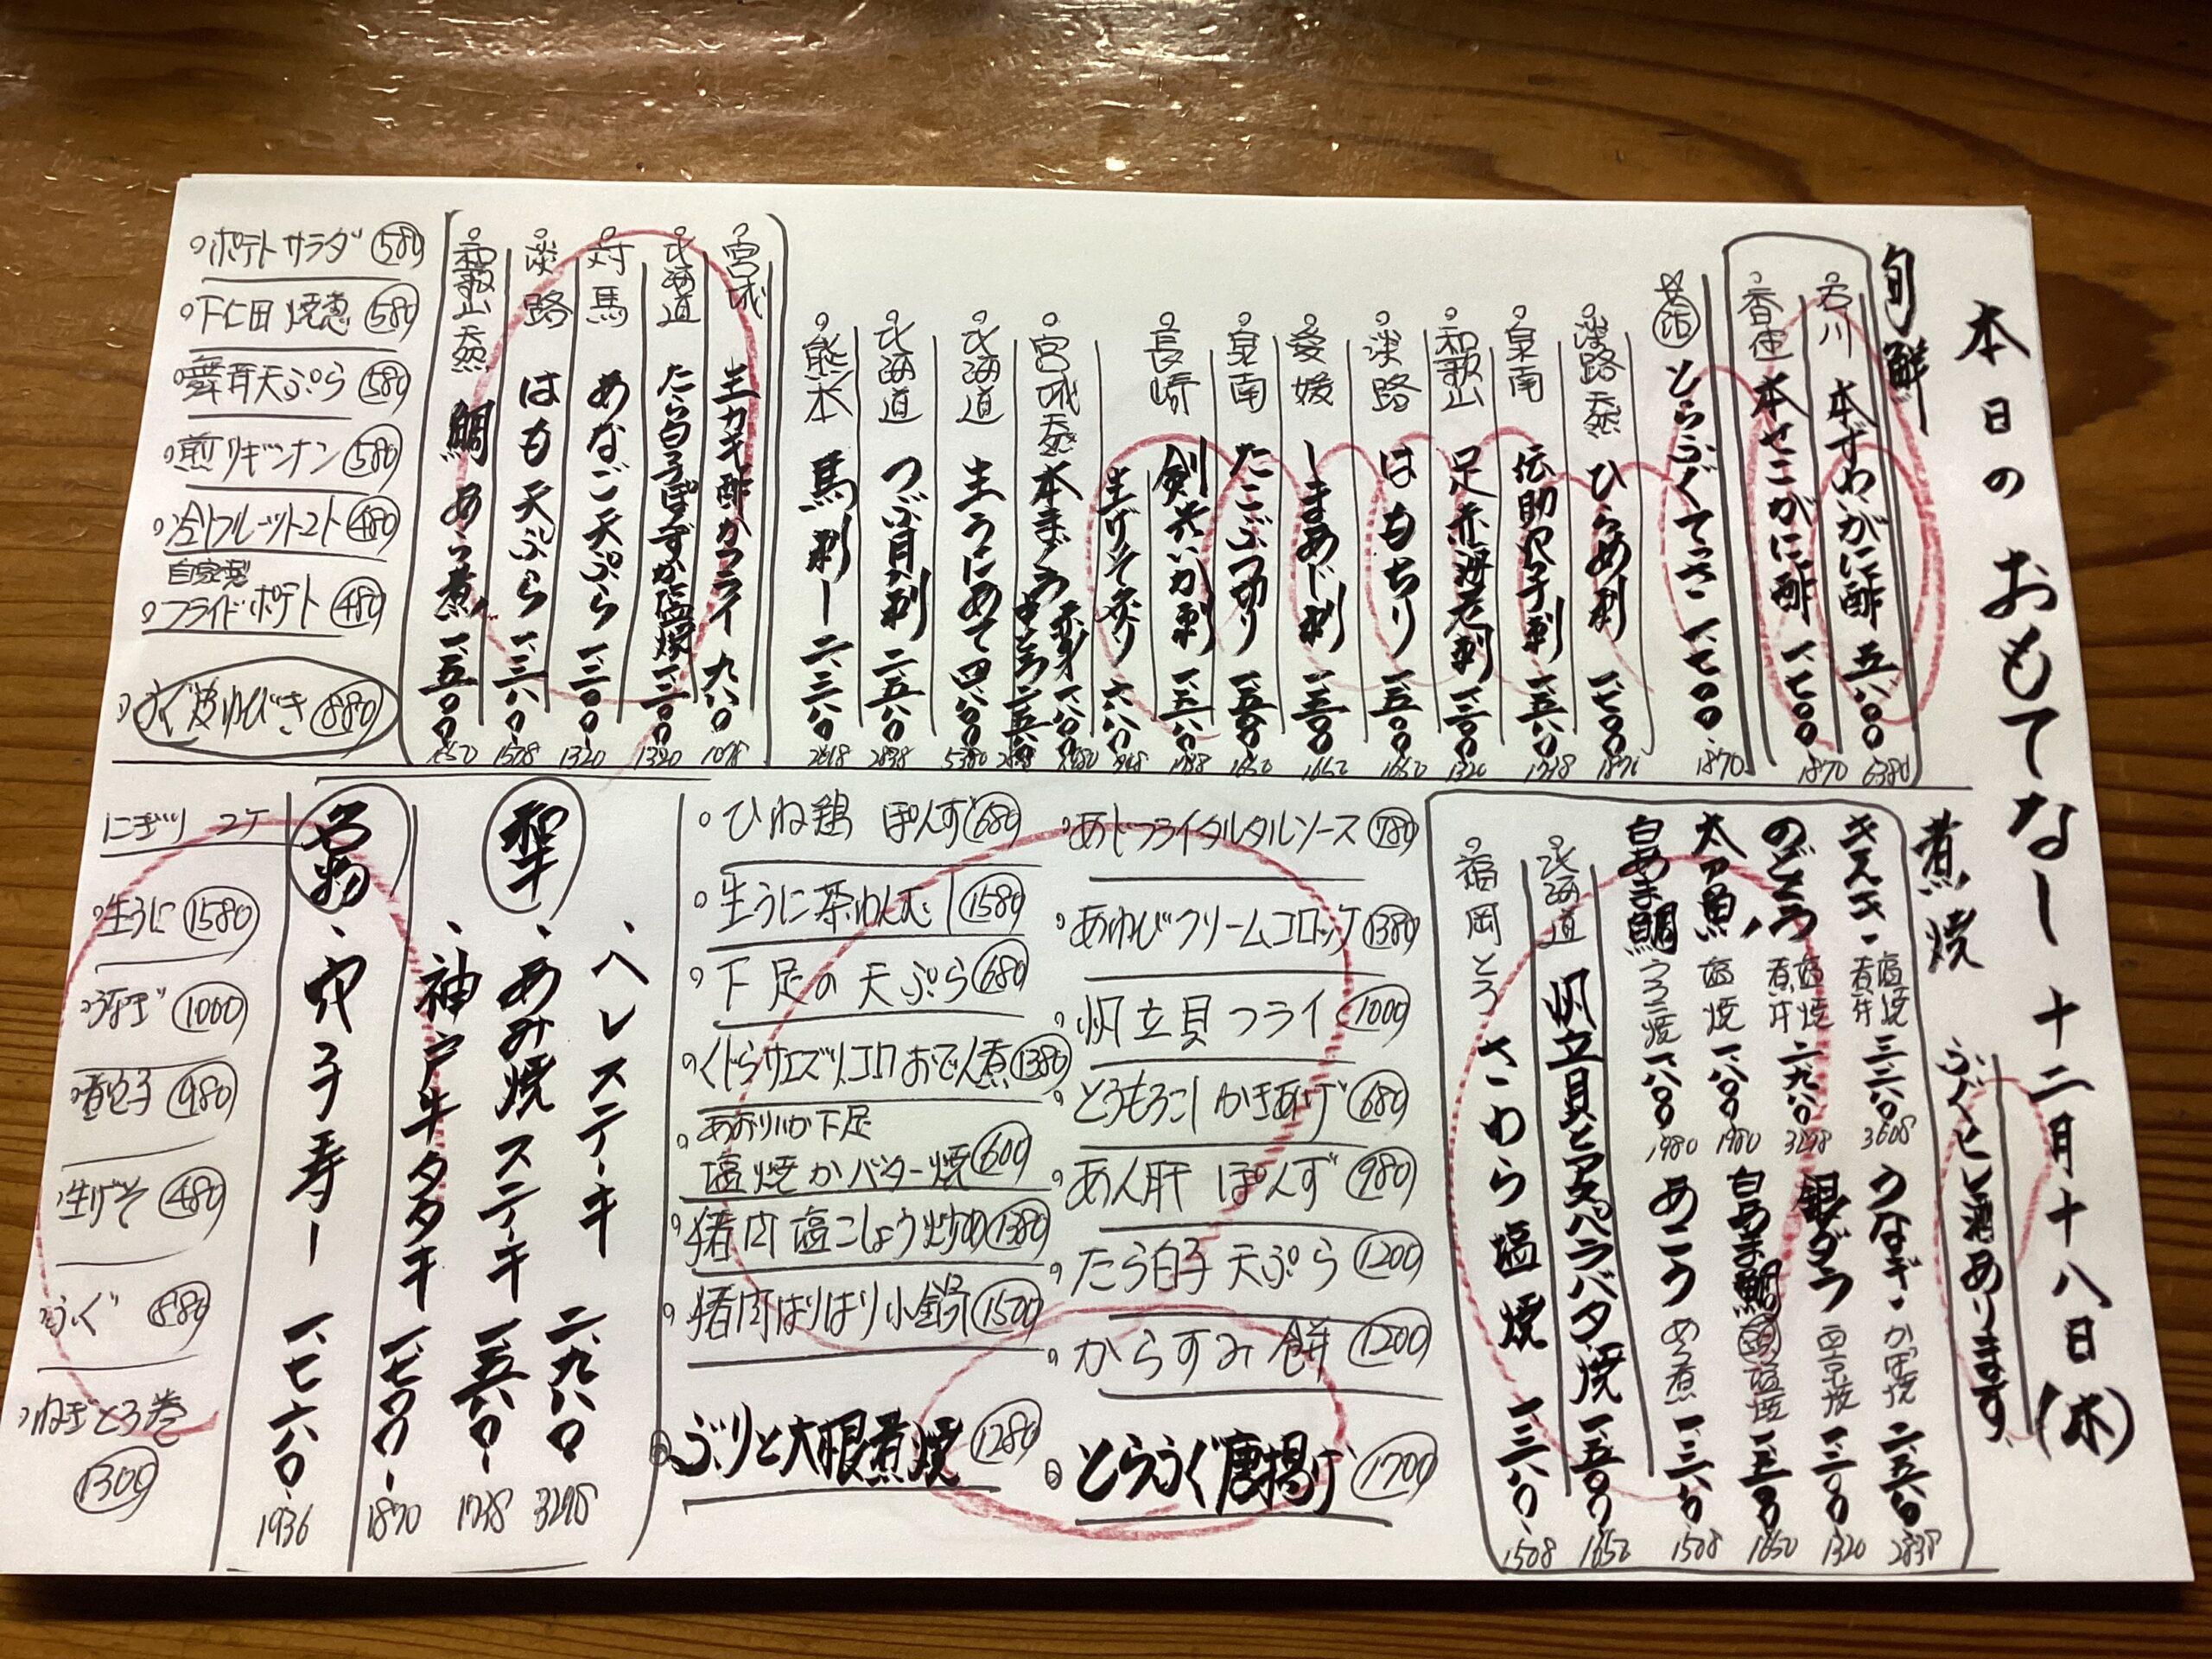 本日のおもてなし 十二月十八日(木)
旬鮮
石川 本ずわいがに酢 五、八〇〇 6380
香住 本せこがに酢 一、七〇〇 1870
とらふぐてっさ 一、七〇〇 1870
淡路天然 ひらめ刺 一、七〇〇
泉南 伝助穴子刺 一、五八〇 1738
和歌山 足赤海老刺 一、二〇〇 1320
淡路 はもちり 一、五〇〇 1650
愛媛 しまあじ刺 一、五〇〇 1650
泉南 たこぶつ切り 一、五〇〇 1650
長崎 剣先いか刺
生げそ炙り
宮城 天然 本まぐろ 赤身 一、八〇〇 1980
中とろ
北海道 生うにあて 四、八〇〇
北海道 つぶ貝刺 二、五八〇 2838
熊本 馬刺し 二、三八〇 2618
宮城 生カキ酢かフライ 九八〇 1078
北海道 たら白子ぽんずか塩焼 一、二〇〇 1320
対馬 あなご天ぷら 一、二〇〇 1320
淡路 はも天ぷら
和歌山 天然 鯛あら煮 一、五〇〇 1650
ポテトサラダ 580
下仁田焼葱 580
舞茸天ぷら 580
煎りギンナン 580
冷しフルーツトマト 480
自家製
フライドポテト 480
ふぐ皮ゆびき 880
煮焼
ふぐヒレ酒あります
キンキ 塩焼 煮付 三、二八〇 3608
のどぐろ 塩焼 煮付 二、九八〇 3278
太刀魚 塩焼 一、八〇〇 1980
白あま鯛 うろこ焼 一、八〇〇 1980
うなぎ かば焼 二、五八〇 2838
銀ダラ 西京焼 一、二〇〇 1320
白あま鯛 頭 塩焼 一、五〇〇 1650
あこう あら煮 1508
北海道 帆立貝とアスパラバタ焼 一、五〇〇 1650
福岡とろ さわら塩焼 1508
あじフライタルタルソース 780
あわびクリームコロッケ 1380
帆立貝フライ 1000
とうもろこしかきあげ 680
あん肝ぽんず 980
たら白子天ぷら 1200
からすみ餅 1200
とらふぐ唐揚げ 1700
ひね鶏ぽんず 680
生うに茶わんむし 1580
下足の天ぷら 680
くじらサエズリコロおでん煮 1380
あおりいか下足
塩焼かバター焼 600
猪肉塩こしょう炒め 1380
猪肉はりはり小鍋 1500
ぶりと大根煮焼 1280
和牛
、ヘレステーキ 二、九八〇 3278
、あみ焼ステーキ 一、五八〇 1738
、神戸牛タタキ 一、七〇〇 1870
名物
、穴子寿し 一、七六〇 1936
にぎり 2ケ
生うに 1580
うなぎ 1000
煮穴子 980
生げそ 480
ふぐ 880
ねぎとろ巻
1300